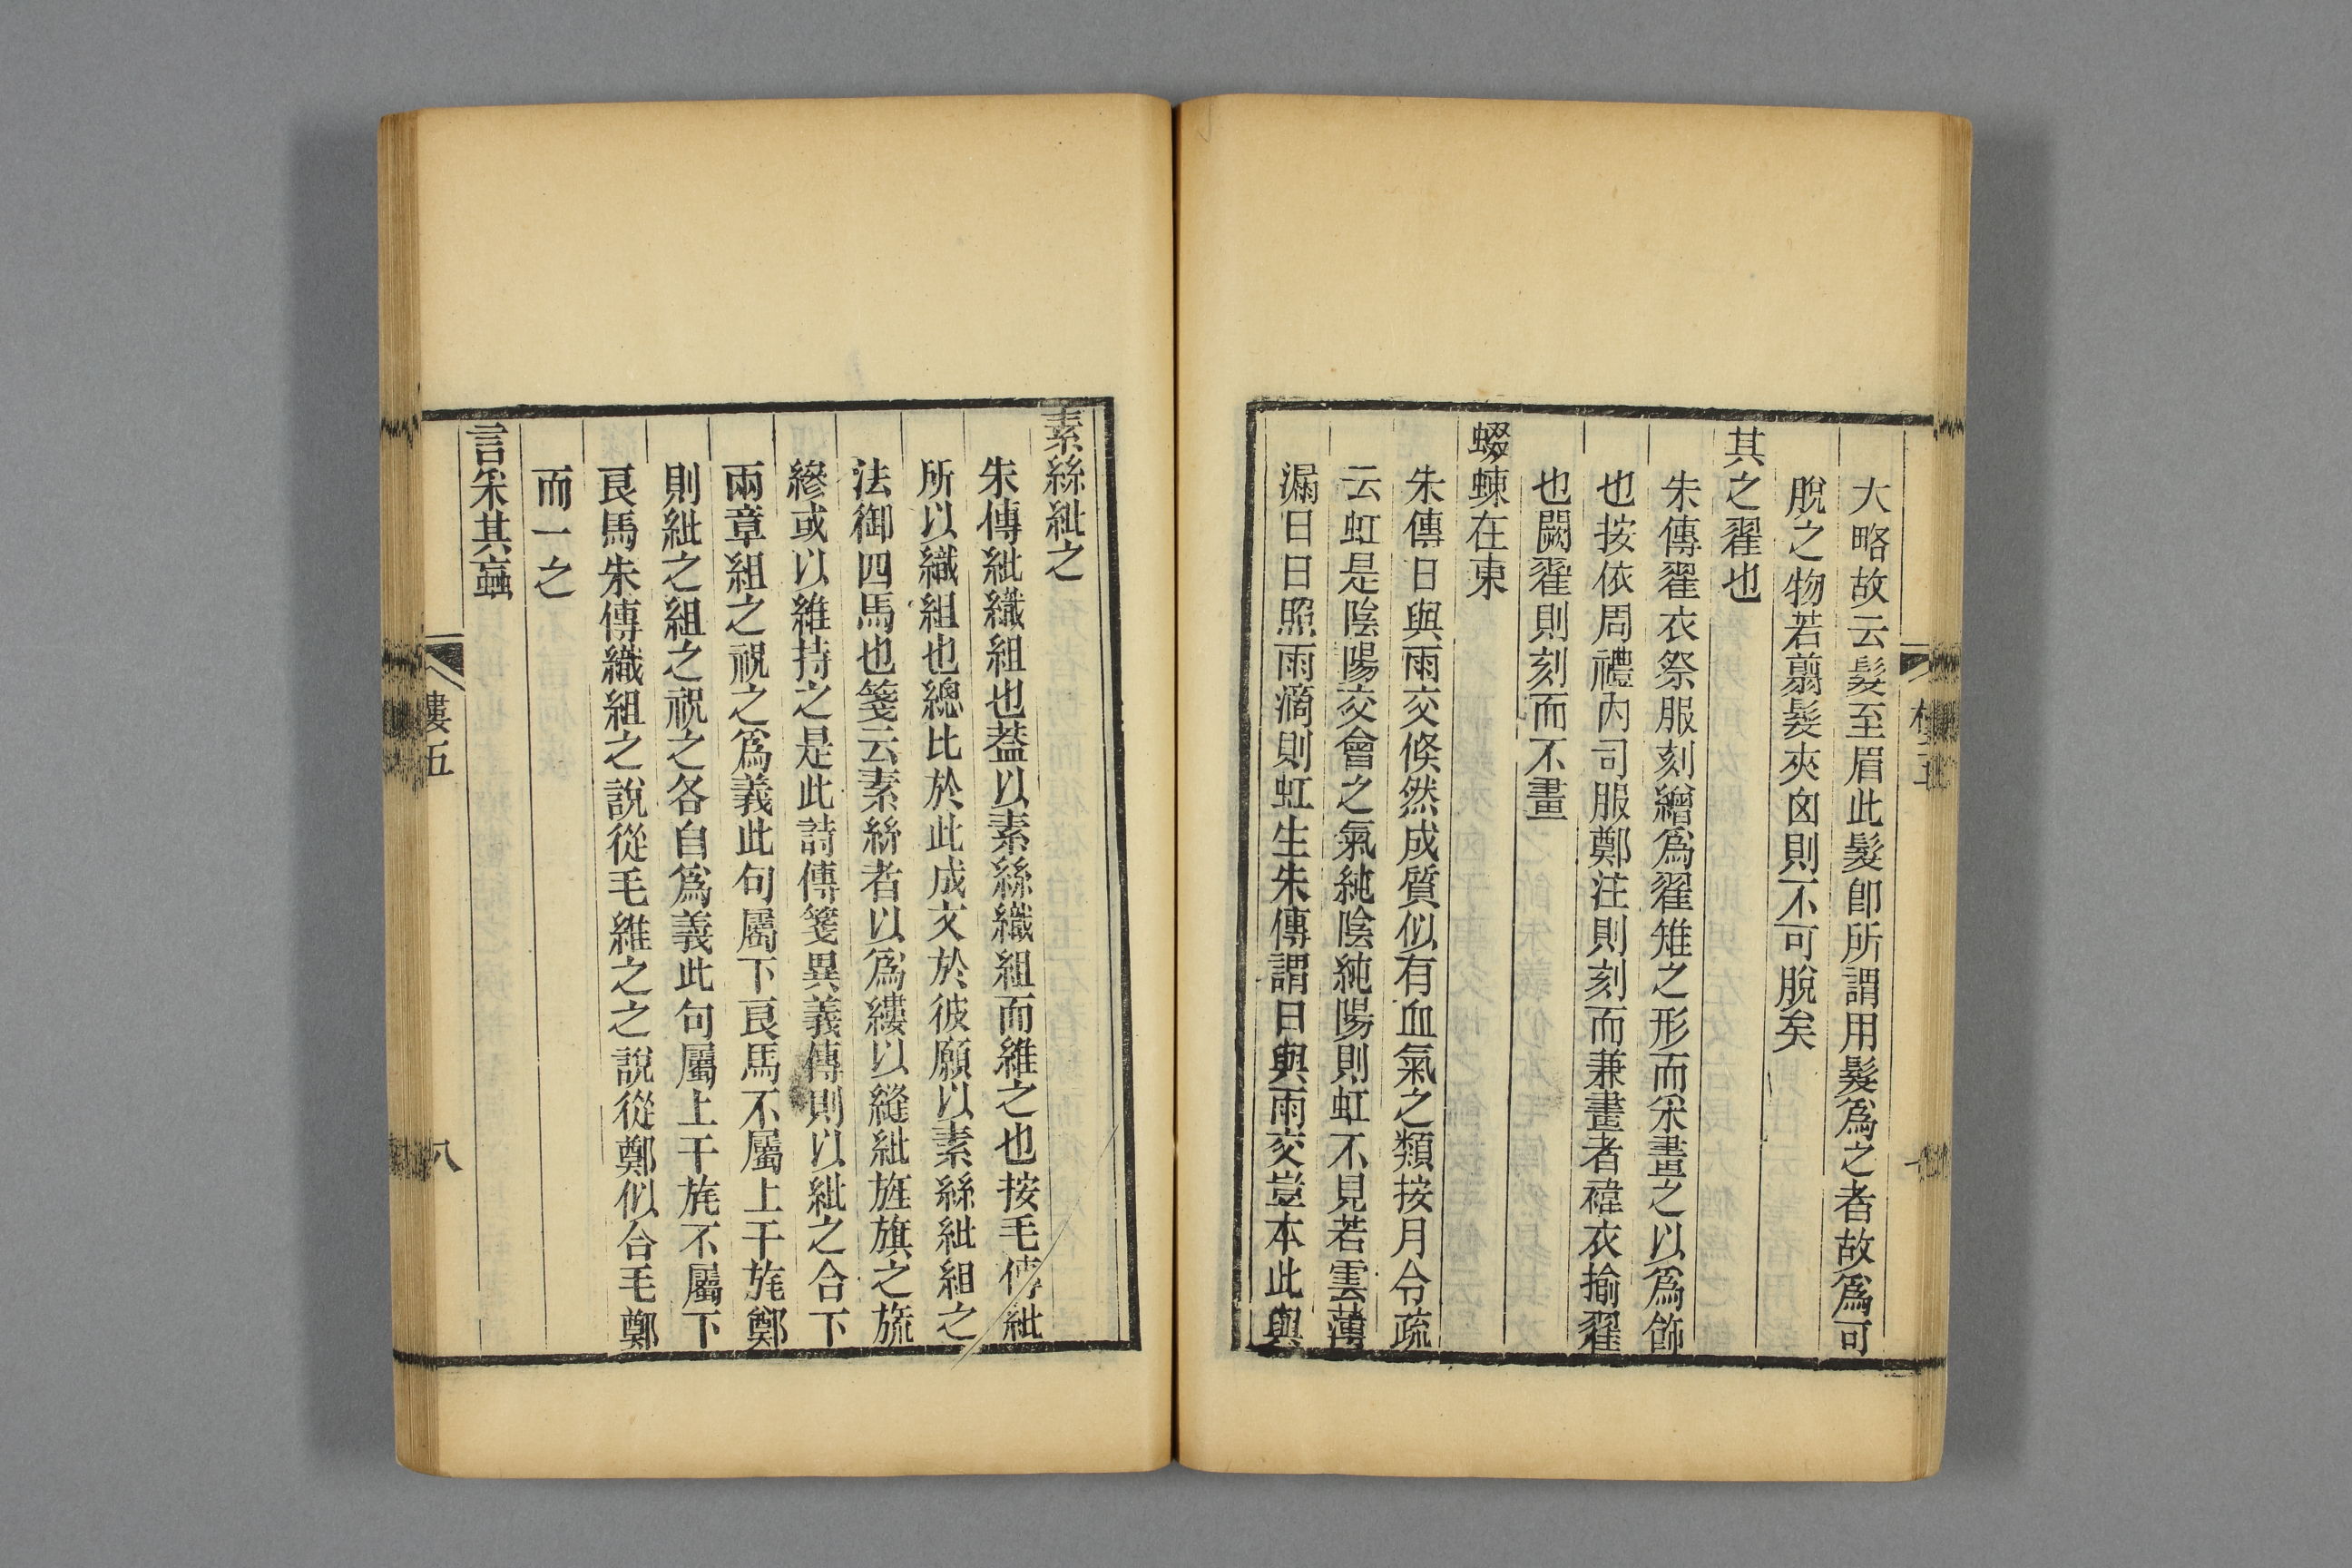 大略故云髮至眉此髮卽所謂用髮爲之者故爲可
脫之物若翦髮夾囟則不可脫矣
其之翟也
朱傳翟衣祭服刻繒爲翟雉之形而采畫之以爲飾
也按依周禮內司服鄭注則刻而兼畫者褘衣揄翟
也闕翟則刻而不畫
蝃蝀在東
朱傳日與雨交倏然成質似有血氣之類按月令疏
云虹是陰陽交會之氣純陰純陽則虹不見若雲薄
漏日日照雨滴則虹生朱傳謂日與雨交豈本此與
素絲紕之
朱傳紕織組也葢以素絲織組而維之也按毛傳紕
所以織組也總比於此成文於彼願以素絲紕組之
法御四馬也箋云素絲者以爲縷以縫紕旌旗之旒
縿或以維持之是此詩傳箋異義傳則以紕之合下
兩章組之祝之爲義此句屬下良馬不屬上干旄鄭
則紕之組之祝之各自爲義此句屬上干旄不屬下
良馬朱傳織組之說從毛維之之說從鄭似合毛鄭
而一之
言采其蝱
樓五
八